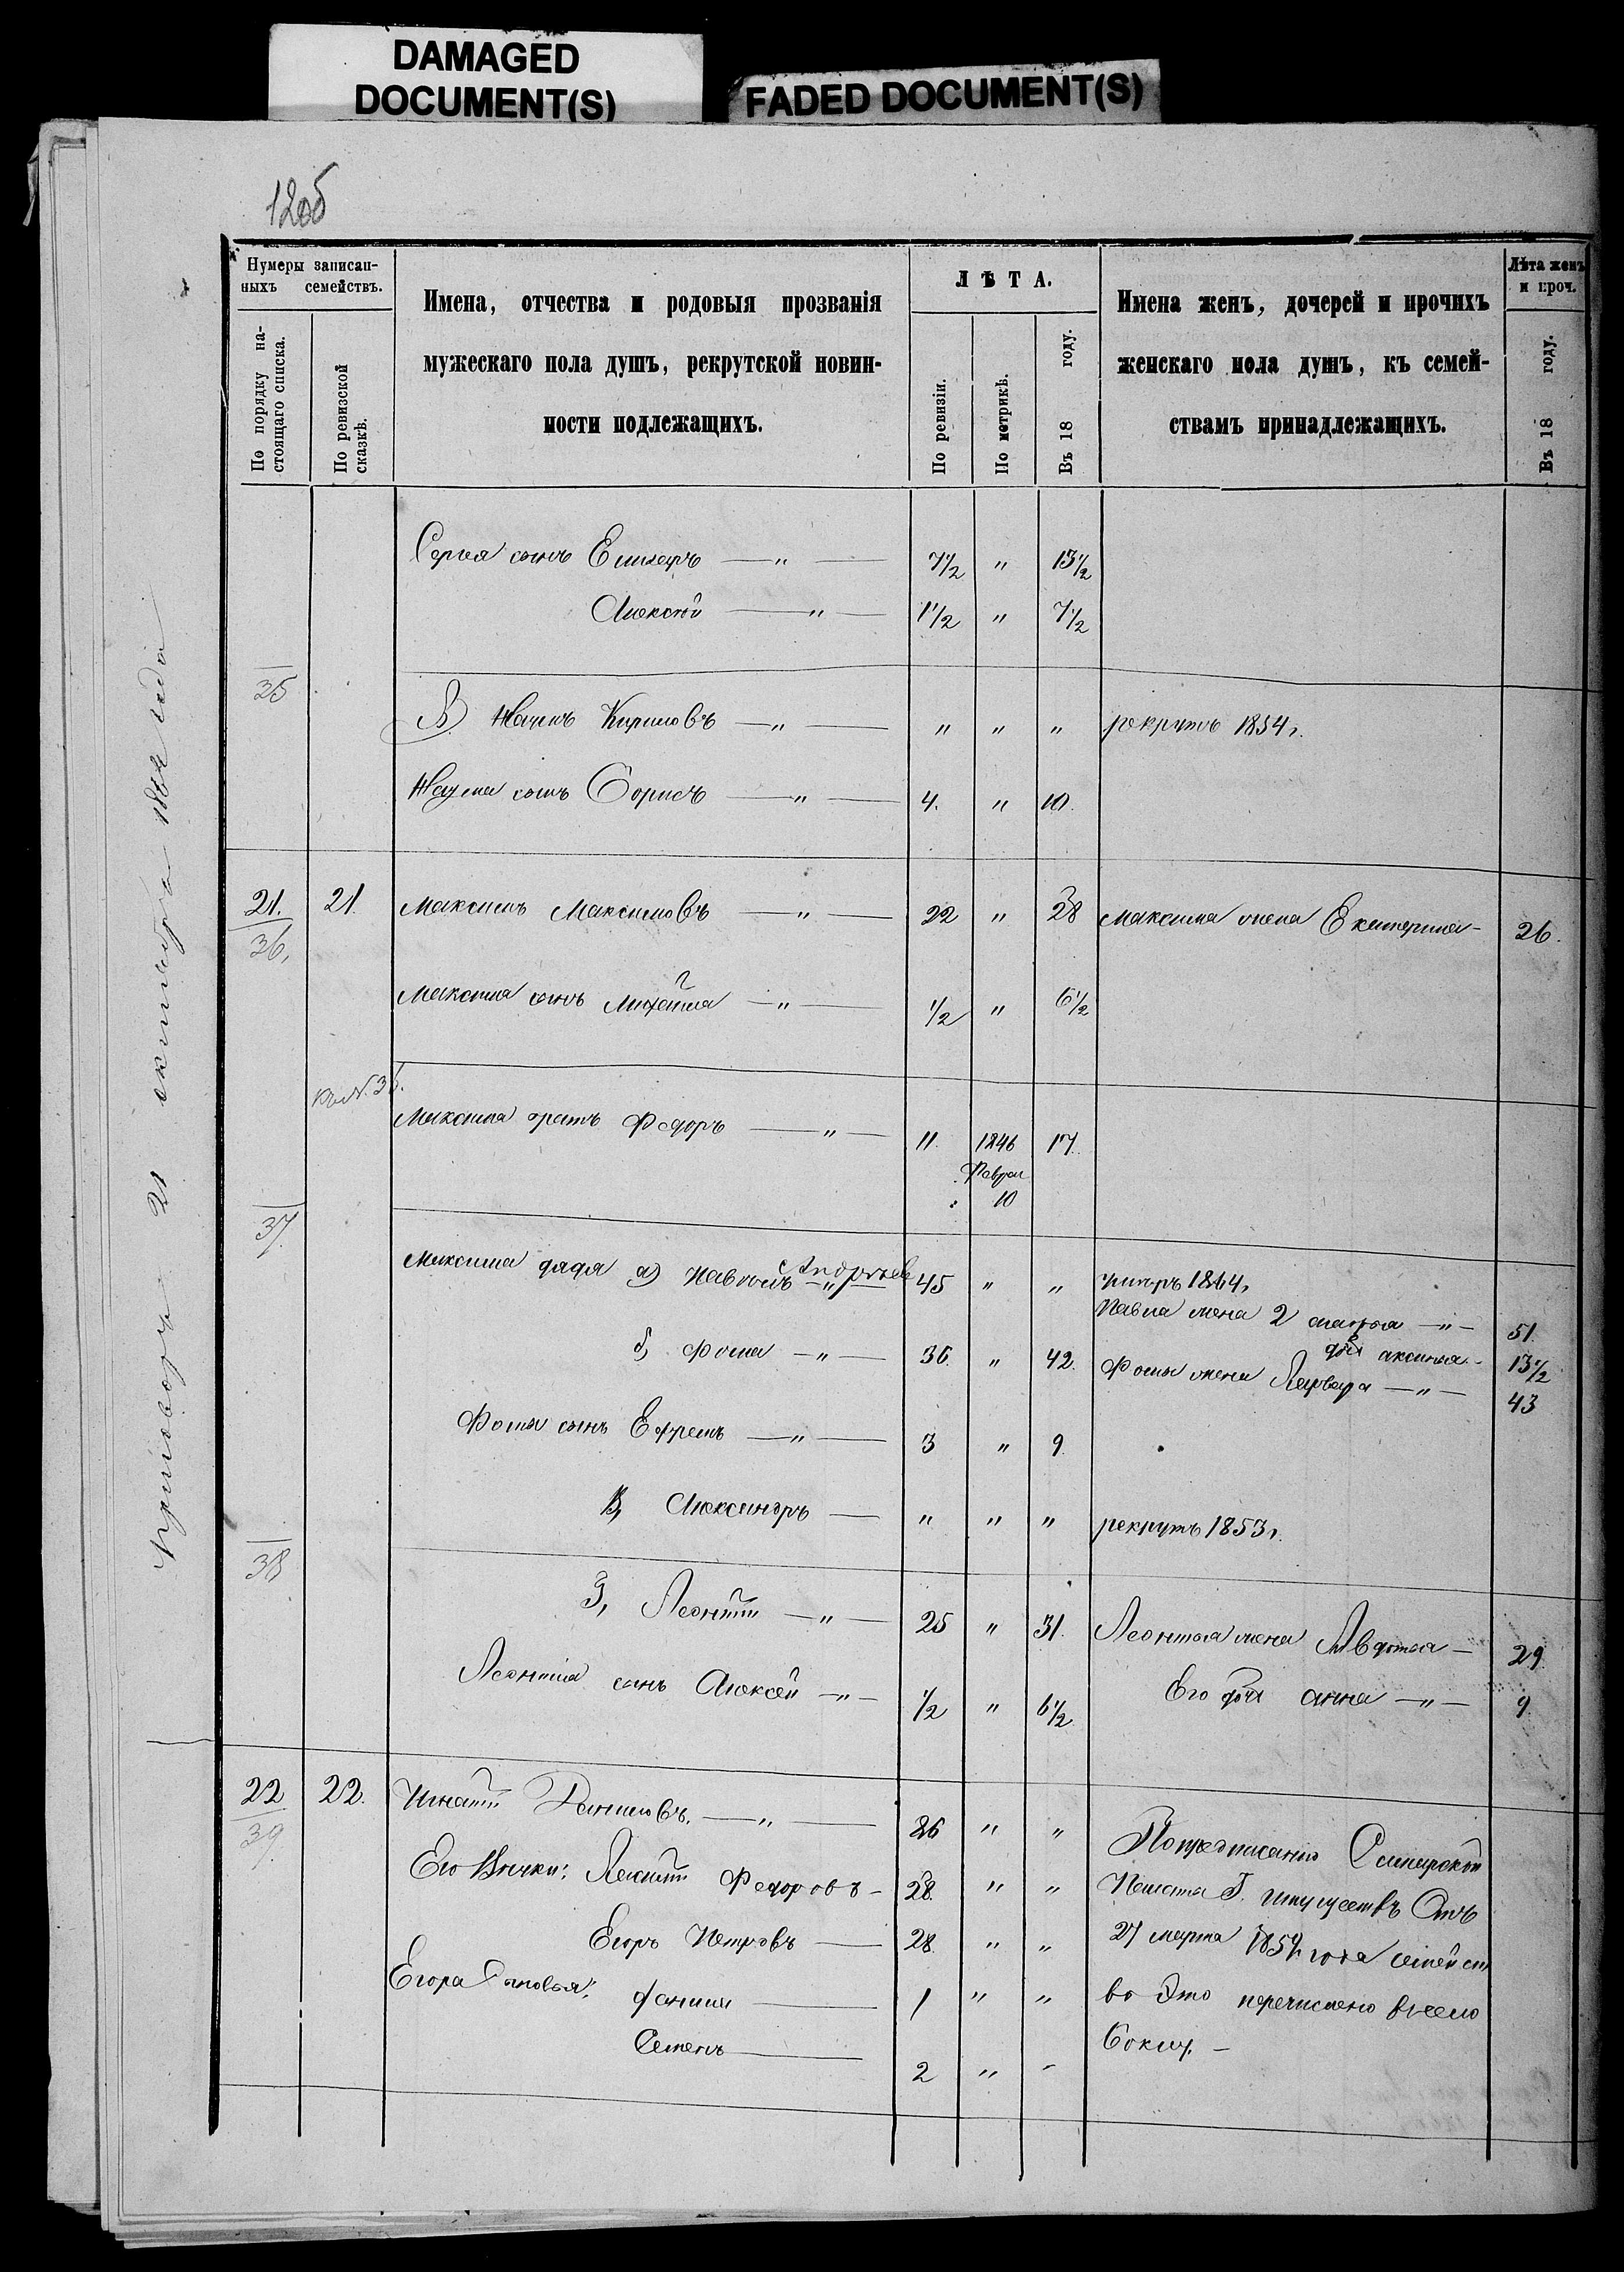 DAMAGED
DOCUMENT(S)
FADED DOCUMENT(S)
12об
Нумеры записан-
ныхъ семействъ.
По порядку на-
стоящаго списка.
По ревизской
сказкѣ.
Имена, отчества и родовыя прозванія
мужескаго пола душъ, рекрутской повин-
ности подлежащихъ.
ЛѢТА.
По ревизіи.
По метрикѣ.
Въ 18 году.
Имена женъ, дочерей и прочихъ
женскаго пола душъ, къ семей-
ствамъ принадлежащихъ.
Лѣта женъ
и проч.
Въ 18 году.
сынъ — " — 7½ " 13½
Алексѣй — " — 1½ " 7½
35
В) Наумъ Кириловъ — " — " " " рекрутъ 1854 г.
Наума сынъ Борисъ — " — 4. " 10.
21. 21. Максимъ Максимовъ — " — 22 " 28 Максима жена Екатерина — 26.
36.
Максима сынъ Михайла — " — ½ " 6½
Максима братъ Федоръ — " — 11. 1846 17.
Феврал
10
37
Максима дядя а) Павелъ Андреевъ — " — 45 " " умеръ 1864 г.
Павла жена 2 — " — 51.
б) Фома — " — 36. " 42. дочь аксинья — 13½
Фомы жена Варвара — " — 43
Фомы сынъ Ефремъ — " — 3 " 9.
В) Александръ — " " " рекрутъ 1853 г.
38
Леонтій — " — 25 " 31. Леонтья жена Авдотья — 29.
Леонтія сынъ Алексѣй — " — ½ " 6½ Его дочь анна — " — 9
22 22. Игнатій Даниловъ. — " — 26 " "
39
Его Леонтій Федоровъ — 28. " "
Егоръ Петровъ — 28. " "
Егора Сановья: Данила — 1 " "
Семенъ — 2 " "
По предписанію Самарской
Палаты Г. имуществъ Отъ
27 марта года семейст
во Это перечислено в село
Боклу. —
Приговоръ 21 октября года